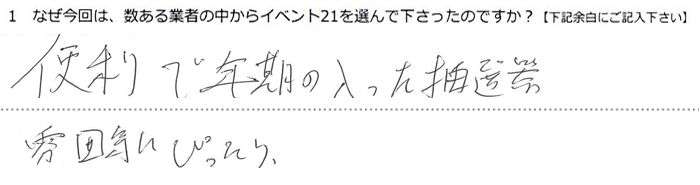 1 なぜ今回は、数ある業者の中からイベント21を選んで下さったのですか？【下記余白にご記入下さい】
便利で年期の入った抽選器
雰囲気にぴったり、